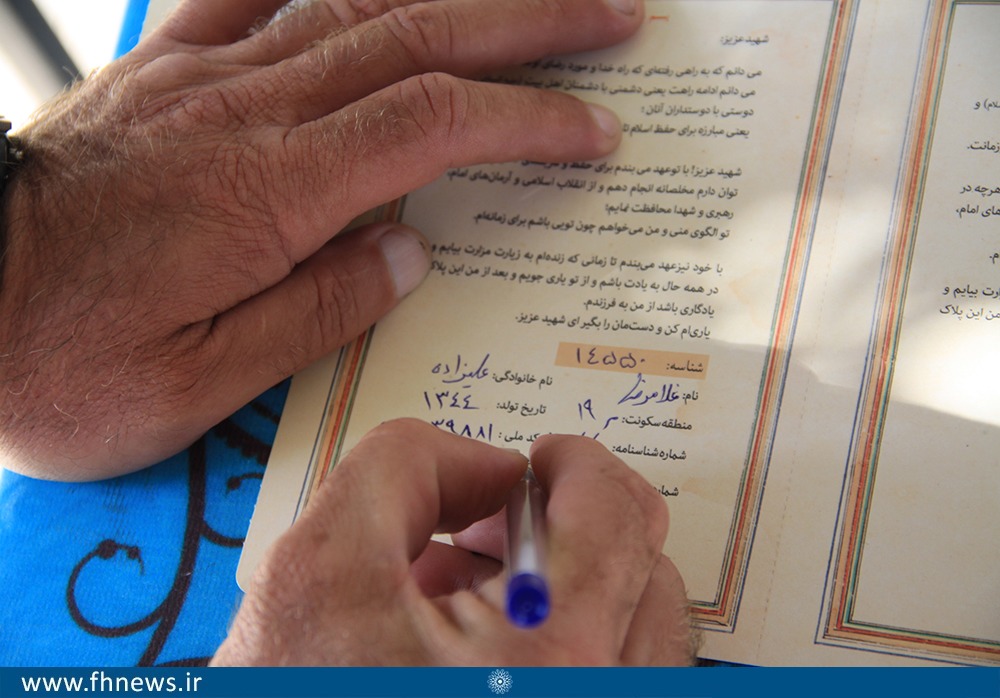 بسم
شهید عزیز:
می دانم که به راهی رفته‌ای که راه خدا و مورد رضای
می دانم ادامه راهت یعنی دشمنی با دشمنان اهل بیت
دوستی با دوستداران آنان؛
یعنی مبارزه برای حفظ اسلام تا
شهید عزیز! با تو عهد می بندم برای حفظ و
توان دارم مخلصانه انجام دهم و از انقلاب اسلامی و آرمان‌های امام،
رهبری و شهدا محافظت نمایم؛
تو الگوی منی و من می‌خواهم چون تویی باشم برای زمانه‌ام.
با خود نیز عهد می‌بندم تا زمانی که زنده‌ام به زیارت مزارت بیایم و
در همه حال به یادت باشم و از تو یاری جویم و بعد از من این پلاک
یادگاری باشد از من به فرزندم.
یاری‌ام کن و دست‌مان را بگیر ای شهید عزیز.
شناسه: ۱۴۵۵۰
نام: غلامرضا نام خانوادگی: علیزاده
منطقه سکونت: ۱۹ تاریخ تولد: ۱۳۴۴
شماره شناسنامه: کد ملی: ۳۹۸۸۱
شما
سلام) و
زمانت.
هرچه در
های امام،
م.
ارت بیایم و
من این پلاک
www.fhnews.ir